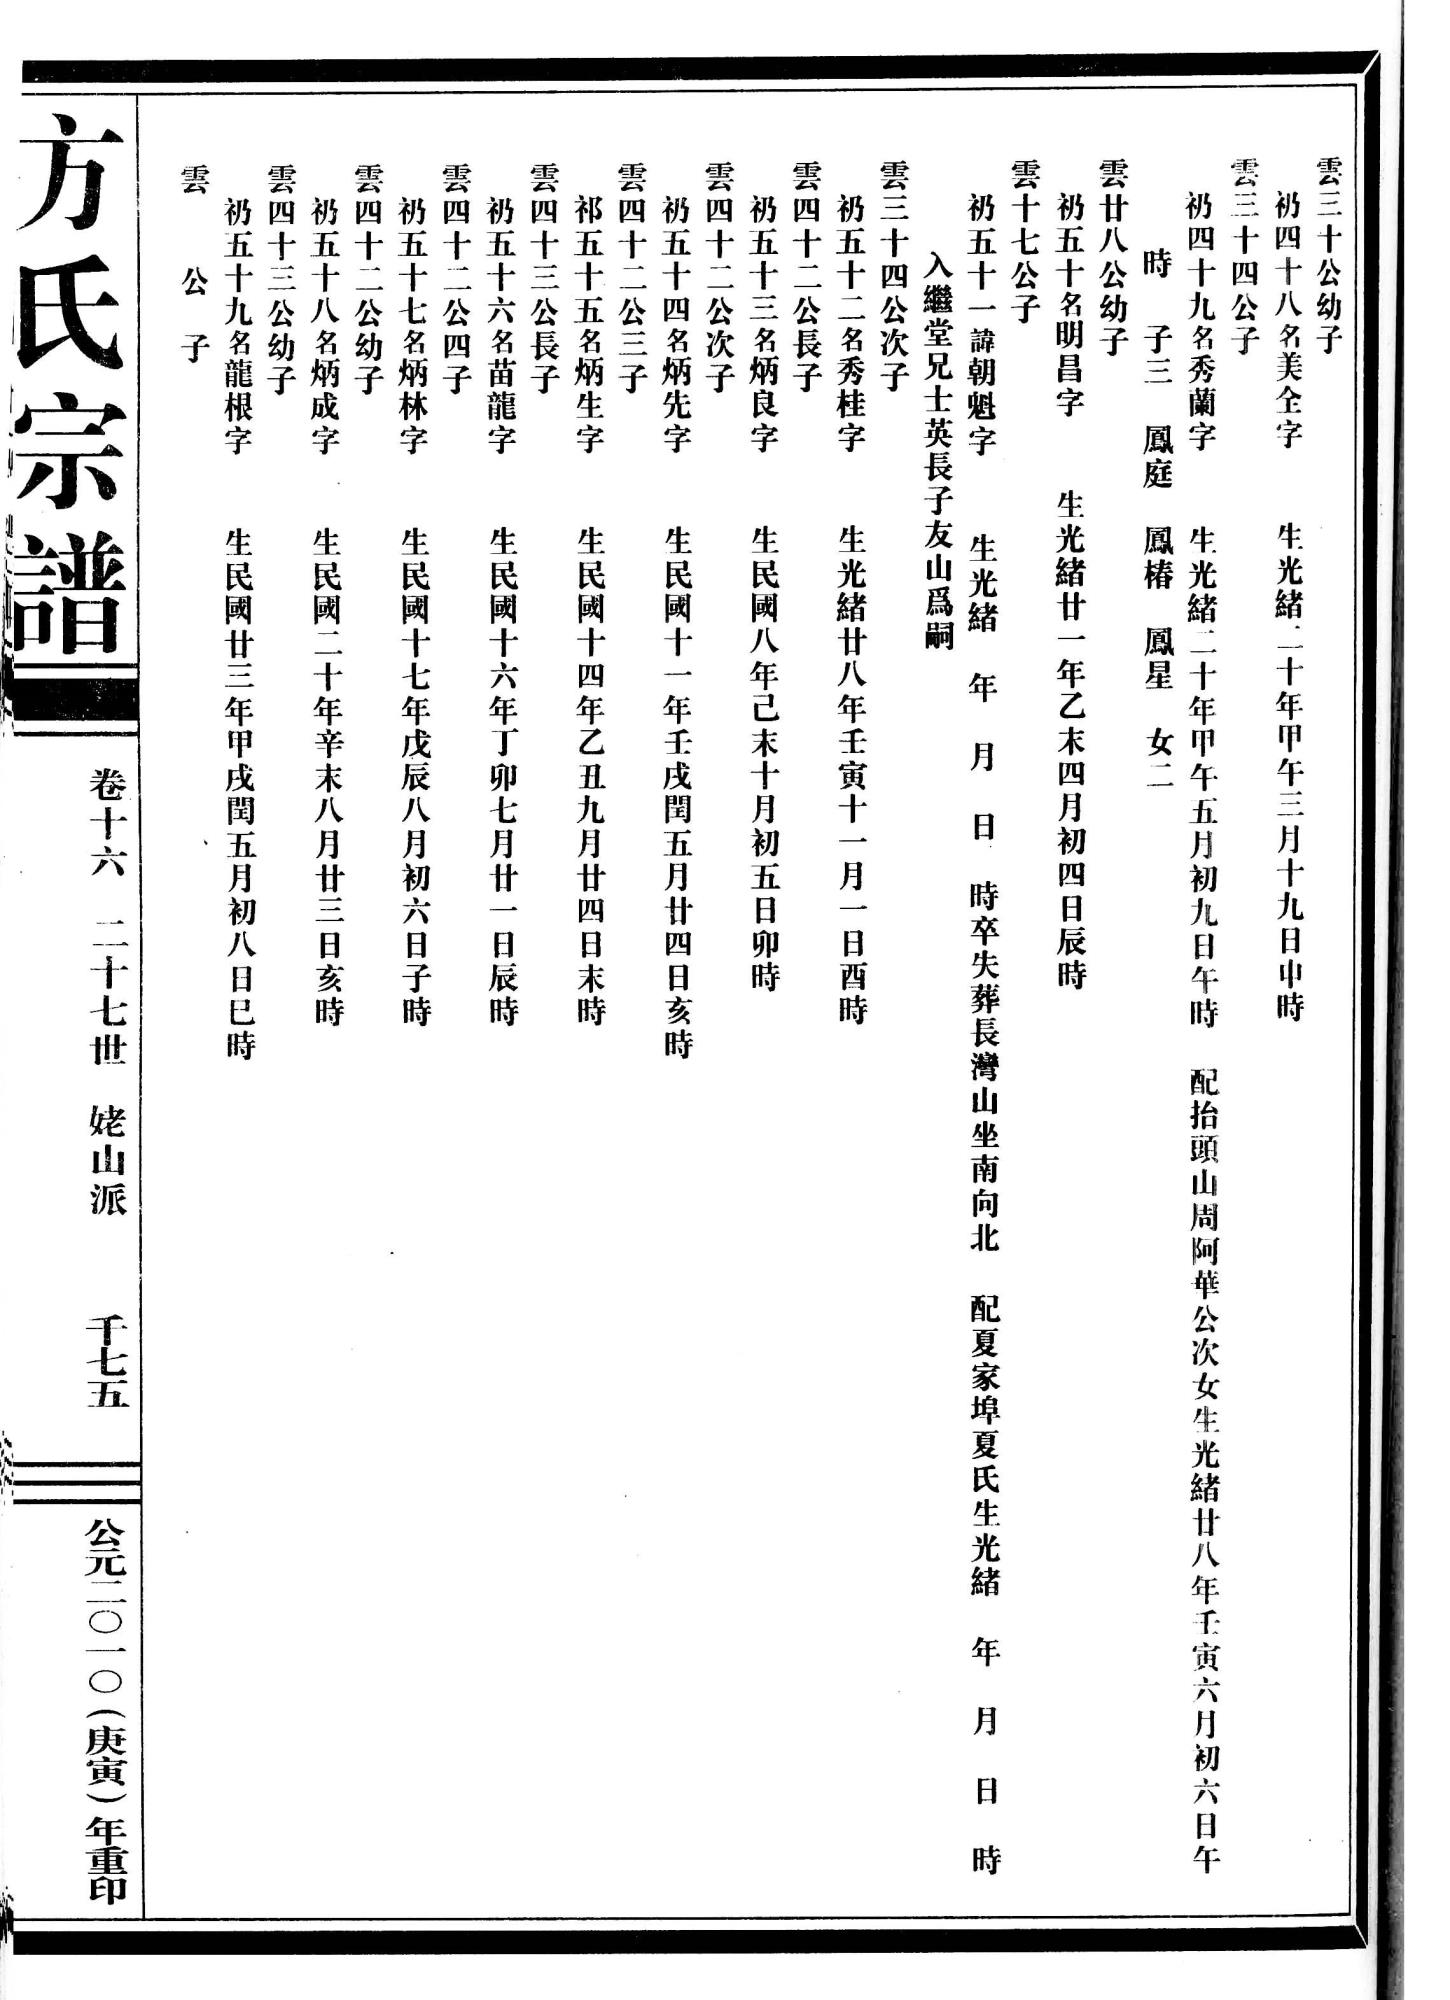 雲三十公幼子
礽四十八名美全字　生光緒二十年甲午三月十九日申時
雲三十四公子
礽四十九名秀蘭字　生光緒二十年甲午五月初九日午時　配抬頭山周阿華公次女生光緒廿八年壬寅六月初六日午
時　子三　鳳庭　鳳椿　鳳星　女二
雲廿八公幼子
礽五十名明昌字　生光緒廿一年乙未四月初四日辰時
雲十七公子
礽五十一諱朝魁字　生光緒　年　月　日　時卒失葬長灣山坐南向北　配夏家埠夏氏生光緒　年　月　日　時
入繼堂兄士英長子友山爲嗣
雲三十四公次子
礽五十二名秀桂字　生光緒廿八年壬寅十一月一日酉時
雲四十二公長子
礽五十三名炳良字　生民國八年己未十月初五日卯時
雲四十二公次子
礽五十四名炳先字　生民國十一年壬戌閏五月廿四日亥時
雲四十二公三子
祁五十五名炳生字　生民國十四年乙丑九月廿四日末時
雲四十三公長子
礽五十六名苗龍字　生民國十六年丁卯七月廿一日辰時
雲四十二公四子
礽五十七名炳林字　生民國十七年戊辰八月初六日子時
雲四十二公幼子
礽五十八名炳成字　生民國二十年辛未八月廿三日亥時
雲四十三公幼子
礽五十九名龍根字　生民國廿三年甲戌閏五月初八日巳時
雲　公　子
方氏宗譜
卷十六　二十七世　姥山派　千七五
公元二〇一〇（庚寅）年重印